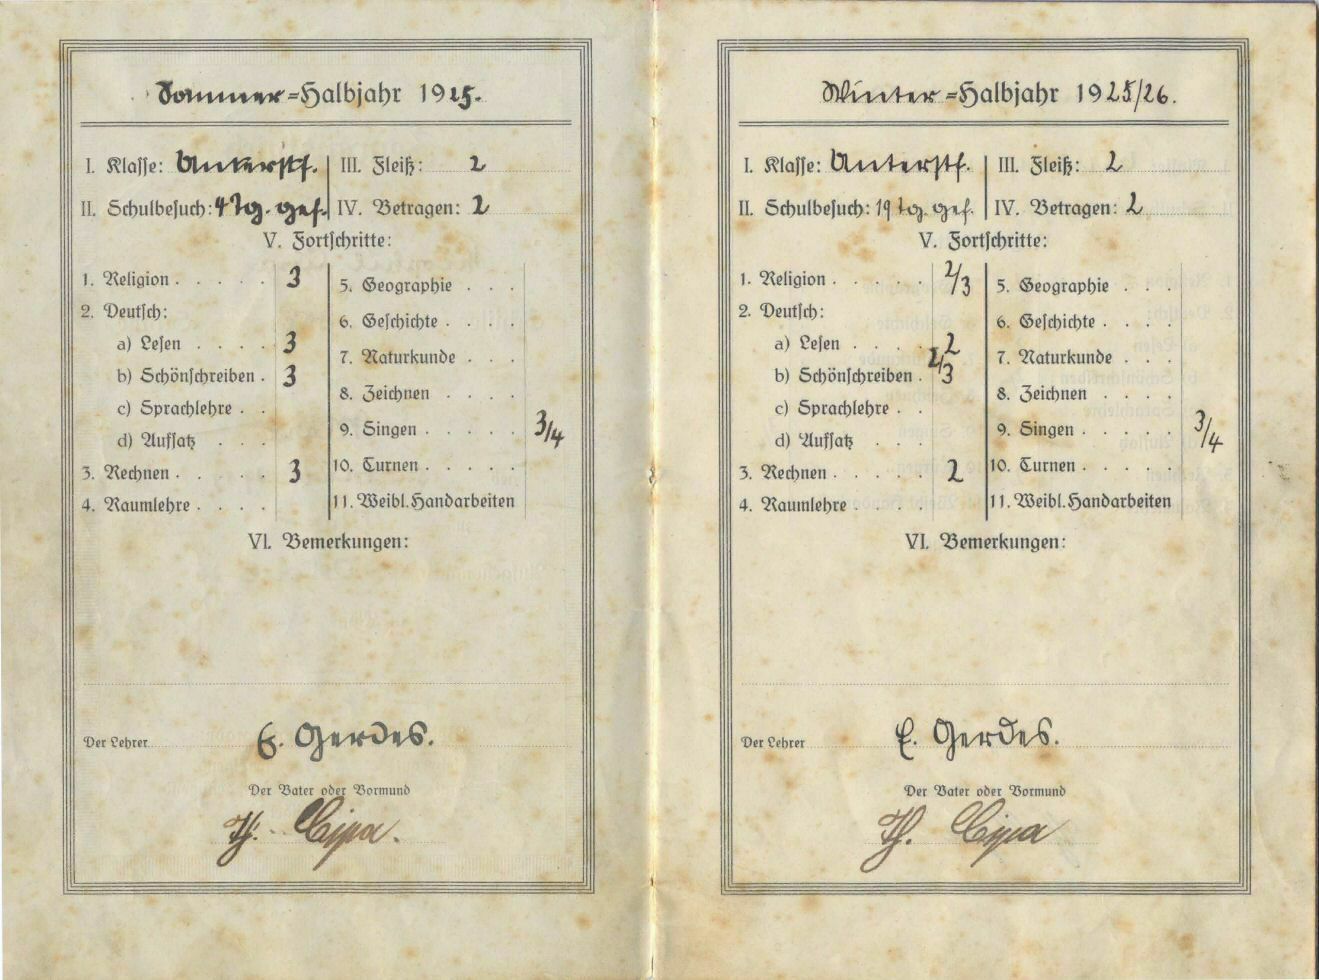 Sommer-Halbjahr 1925.
I. Klasse: Unterstf.
III. Fleiß: 2
II. Schulbesuch: 4 Tg. gef.
IV. Betragen: 2
V. Fortschritte:
1. Religion . . . . . 3
2. Deutsch:
a) Lesen . . . . 3
b) Schönschreiben . 3
c) Sprachlehre . .
d) Aufsatz . . .
3. Rechnen . . . . 3
4. Raumlehre . . . .
5. Geographie . . .
6. Geschichte . . . .
7. Naturkunde . . .
8. Zeichnen . . . .
9. Singen . . . . . 3/4
10. Turnen . . . . .
11. Weibl. Handarbeiten
VI. Bemerkungen:
Der Lehrer E. Gerdes.
Der Vater oder Vormund
Th. Cipa.
Winter-Halbjahr 1925/26.
I. Klasse: Unterstf.
III. Fleiß: 2
II. Schulbesuch: 19 Tg. gef.
IV. Betragen: 2
V. Fortschritte:
1. Religion . . . . . 2/3
2. Deutsch:
a) Lesen . . . . 2
b) Schönschreiben . 2/3
c) Sprachlehre . .
d) Aufsatz . . .
3. Rechnen . . . . 2
4. Raumlehre . . . .
5. Geographie . . .
6. Geschichte . . . .
7. Naturkunde . . .
8. Zeichnen . . . .
9. Singen . . . . . 3/4
10. Turnen . . . . .
11. Weibl. Handarbeiten
VI. Bemerkungen:
Der Lehrer E. Gerdes.
Der Vater oder Vormund
Th. Cipa